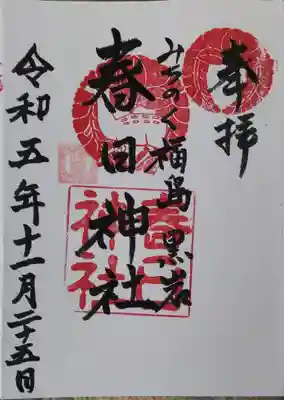 奉拝
みちのく福島黒岩
春日神社
令和五年十一月二十五日
春日
神社